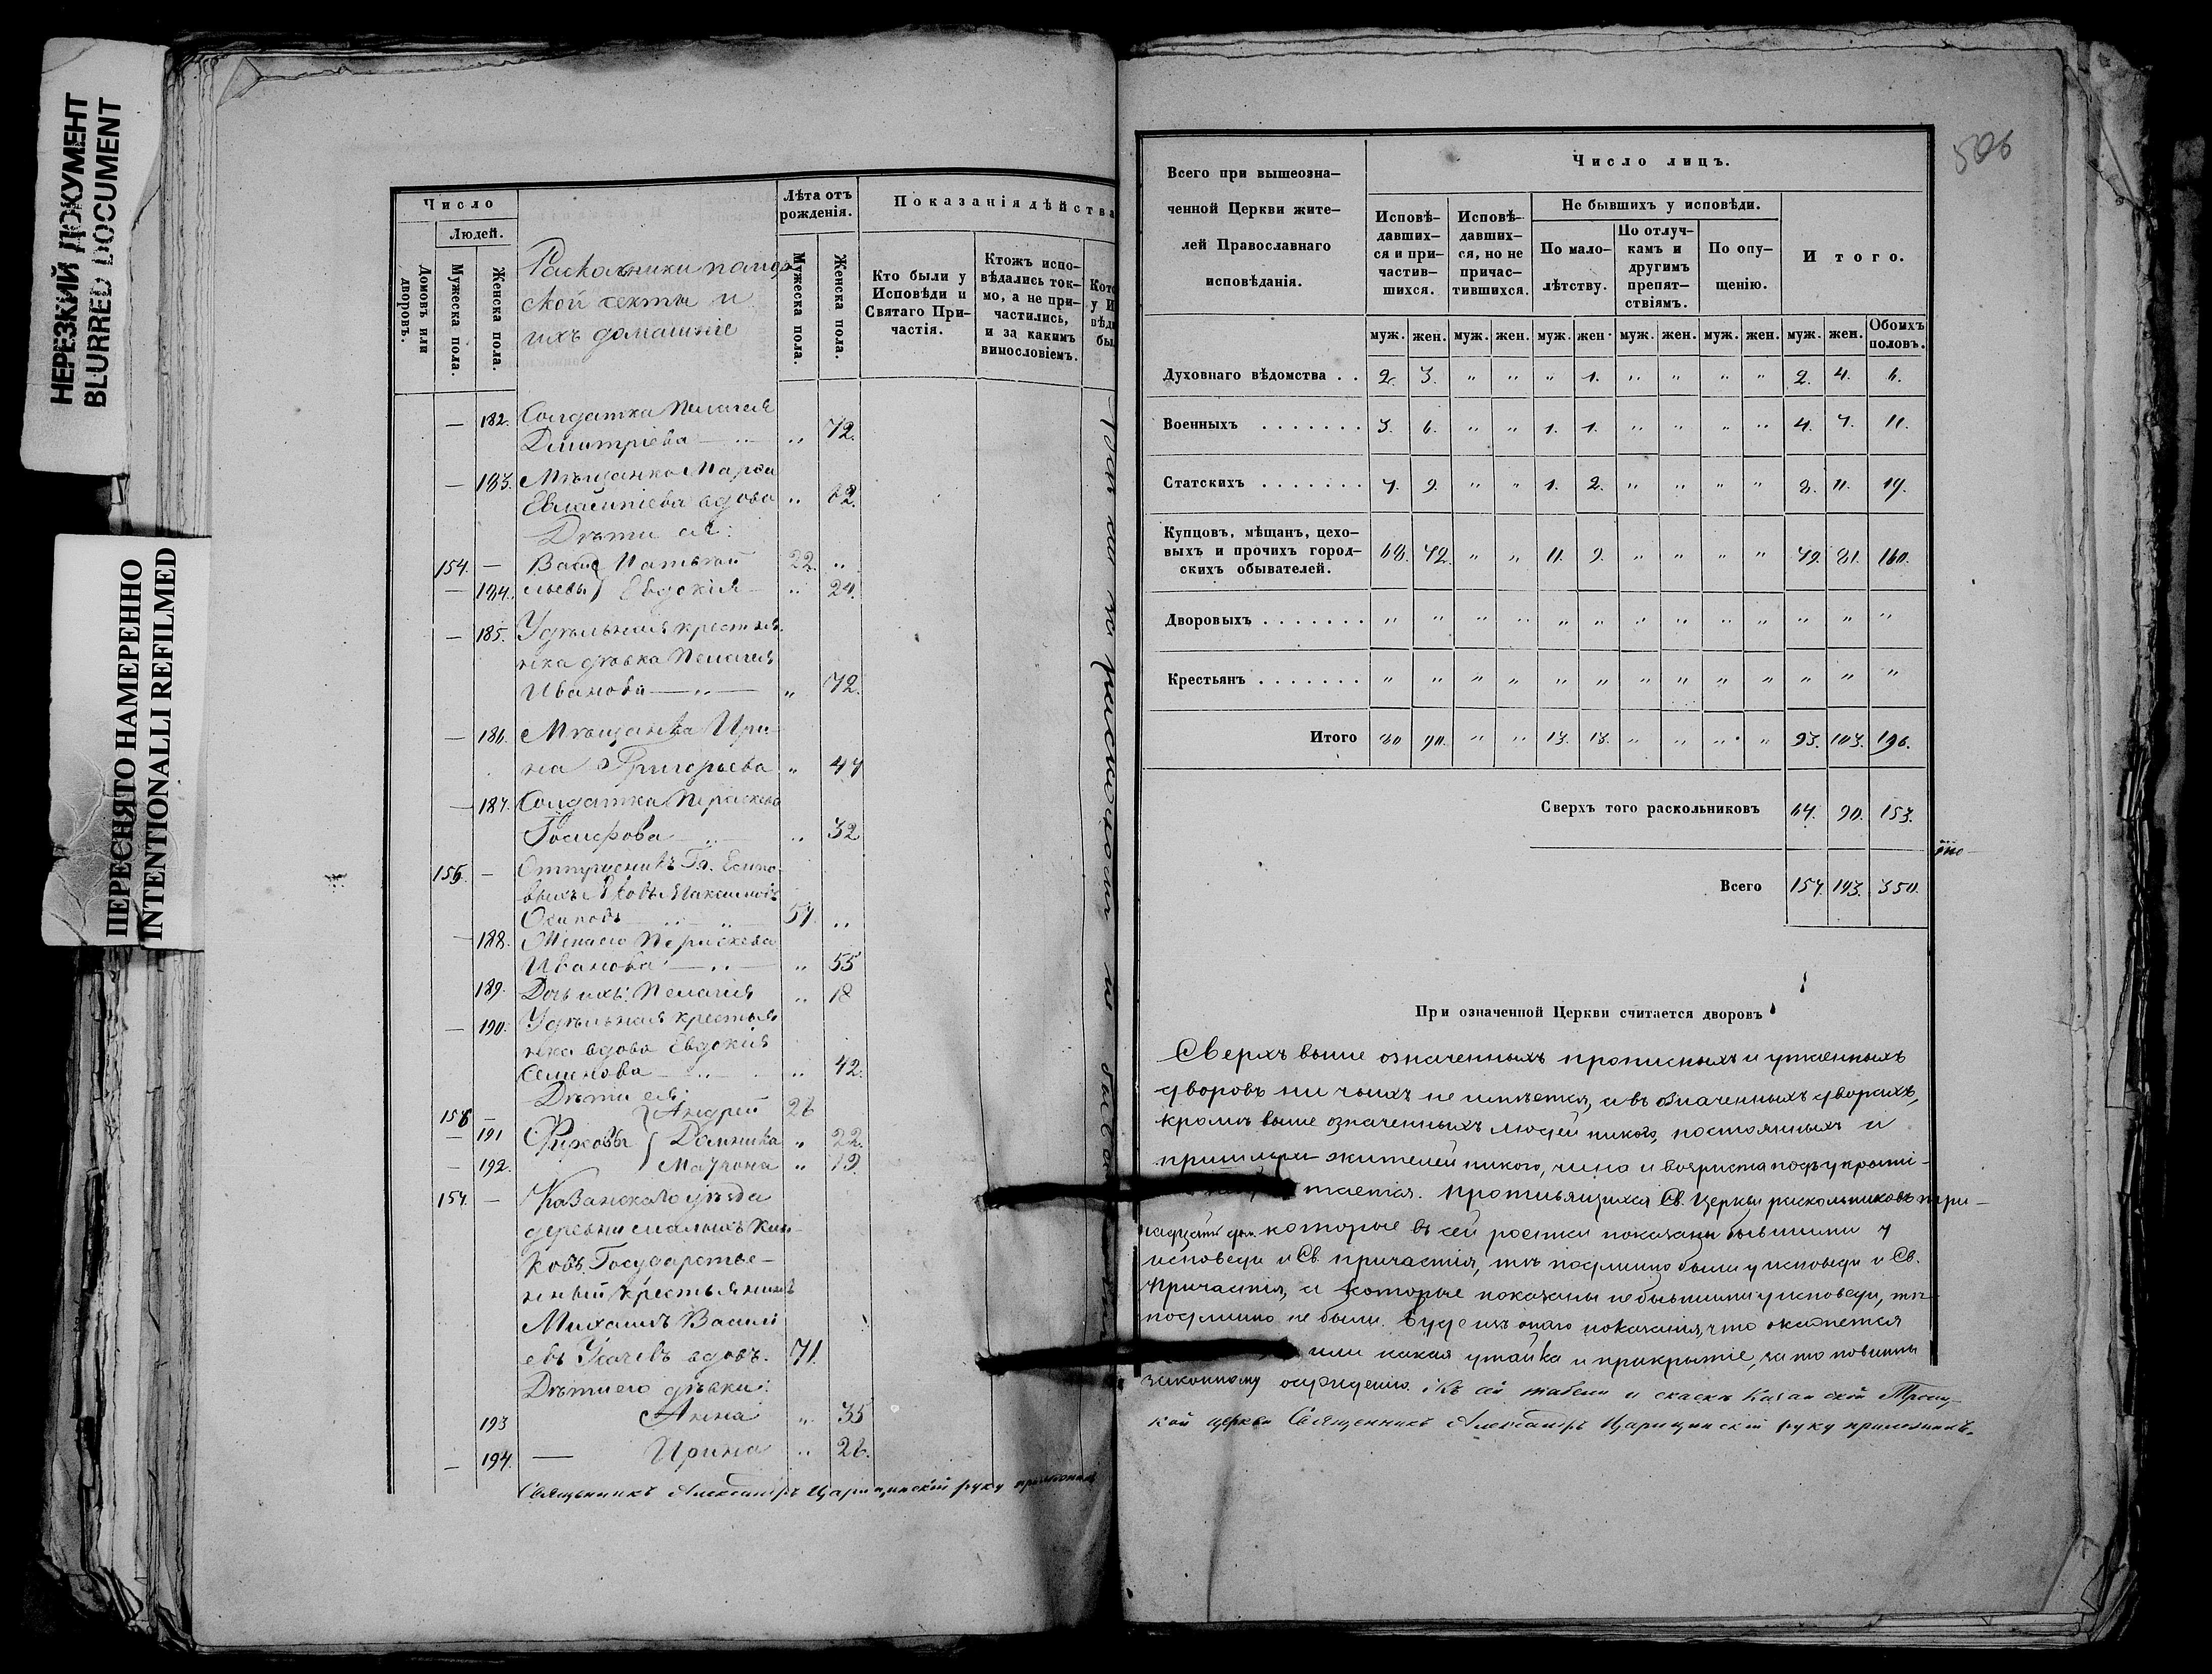 НЕРЕЗКИЙ ДОКУМЕНТ
BLURRED DOCUMENT
ПЕРЕСНЯТО НАМЕРЕННО
INTENTIONALLI REFILMED
Число
Людей.
Домовъ или дворовъ.
Мужеска пола.
Женска пола.
Лѣта отъ рожденія.
Мужеска пола.
Женска пола.
Показанія дѣйства
Кто были у Исповѣди и Святаго Причастія.
Ктожъ исповѣдались токмо, а не причастились, и за какимъ винословіемъ.
ской секты и
ихъ домашніе
— 182. Солдатка Пелагея
Дмитріева — „ 72.
— 183. Мѣщанка Марѳа
вдова „ 62.
Дѣти ея:
154. — 22. „
— 184. Евдокія „ 24.
— 185. Удѣльная крестьян
ка дѣвка Пелагея
Иванова — „ — „ 72.
— 186. Мѣщанка Ири
на Григорьева „ 47
— 187. Солдатка Параскева
„ 32
155. —
Осиповъ 57. „
— 188. Жена его Параскева
Иванова — „ — „ 55
189. Дочь ихъ: Пелагея „ 18
— 190. Удѣльная крестьян
ка вдова Евдокія
Семенова — „ 42.
Дѣти ея:
156 — Андрей 26
— 191 „ 22.
— 192. Матрона „ 19.
157. — Казанскаго уѣзда
деревни малыхъ
ковъ Государстве-
нный крестьянинъ
Михаилъ Васильі
евъ вдовъ. 71.
Дѣти его дѣвки:
193 Анна „ 35
— 194. — Ирина „ 26.
Священникъ Александръ Царицынскій руку приложилъ
506
Всего при вышеозна-
ченной Церкви жите-
лей Православнаго
исповѣданія.
Число лицъ.
Исповѣдавшихся и причастившихся.
Исповѣдавшихся, но не причастившихся.
Не бывшихъ у исповѣди.
По малолѣтству.
По отлучкамъ и другимъ препятствіямъ.
По опущенію.
Итого.
муж. жен. муж. жен. муж. жен. муж. жен. муж. жен. муж. жен. Обоихъ половъ.
Духовнаго вѣдомства . . 2. 3. „ „ „ 1. „ „ „ „ 2. 4. 6.
Военныхъ . . . . . . . 3. 6. „ „ 1. 1. „ „ „ „ 4. 7. 11.
Статскихъ . . . . . . . 7. 9. „ „ 1. 2. „ „ „ „ 8. 11. 19.
Купцовъ, мѣщанъ, цехо-
выхъ и прочихъ город-
скихъ обывателей. 68. 72. „ „ 11. 9. „ „ „ „ 79. 81. 160.
Дворовыхъ . . . . . . . „ „ „ „ „ „ „ „ „ „ „ „ „
Крестьянъ . . . . . . . „ „ „ „ „ „ „ „ „ „ „ „ „
Итого 80 90. „ „ 13. 13. „ „ „ „ 93. 103. 196.
Сверхъ того раскольниковъ 64. 90. 153.
Всего 157. 193. 350.
При означенной Церкви считается дворовъ
Сверхъ выше означенныхъ прописныхъ и утаенныхъ
дворовъ ни чьихъ не имѣется, а въ означенныхъ дворахъ,
кромѣ выше означенныхъ людей никого, постоянныхъ и
жителей никого, чина и возраста
тается. Противящихся Св. Церкви раскольниковъ
которые въ сей росписи показаны бывшими у
исповеди и Св. причастія, тѣ подлинно были у исповеди и Св.
Причастія, а которые показаны не бывшими у исповеди, тѣ
подлинно не были. Буде изъ онаго показанія, что окажется
или какая утайка и прикрытіе, за то повинны
законному осужденію. Къ сей табели и сказкѣ Казанской Троиц
кой церкви Священникъ Александръ Царицынскій руку приложилъ.